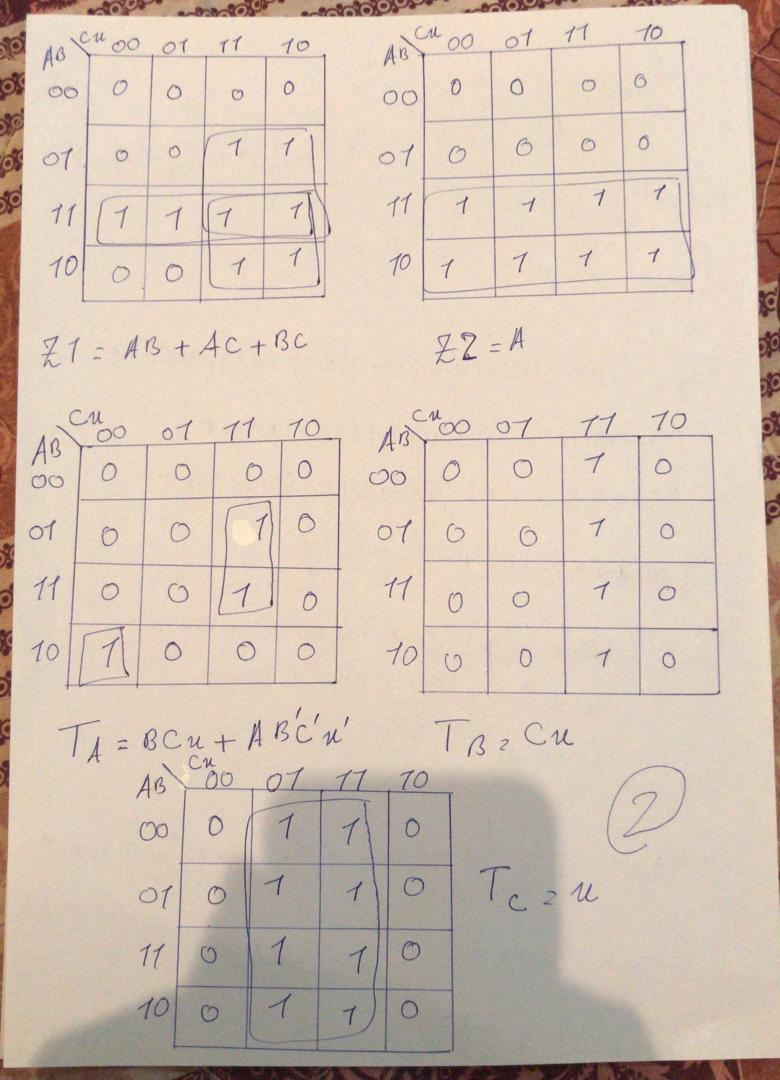 AB Cu 00 01 11 10
00 0 0 0 0
01 0 0 1 1
11 1 1 1 1
10 0 0 1 1
Z1 = AB + AC + BC
AB Cu 00 01 11 10
00 0 0 0 0
01 0 0 0 0
11 1 1 1 1
10 1 1 1 1
Z2 = A
AB Cu 00 01 11 10
00 0 0 0 0
01 0 0 1 0
11 0 0 1 0
10 1 0 0 0
TA = BCu + AB'C'u'
AB Cu 00 01 11 10
00 0 0 1 0
01 0 0 1 0
11 0 0 1 0
10 0 0 1 0
TB = Cu
AB Cu 00 01 11 10
00 0 1 1 0
01 0 1 1 0
11 0 1 1 0
10 0 1 1 0
TC = u
2